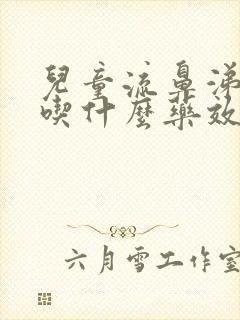 兒童流鼻涕
喫什麼藥效
六月雪工作室